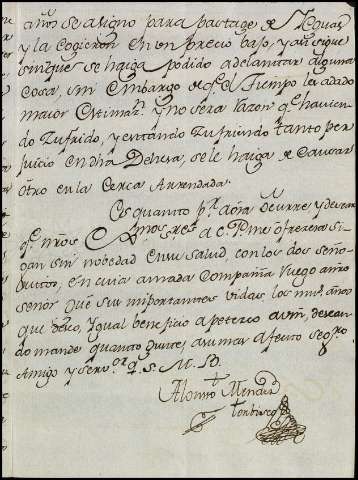 años se asigno para pastage de Yeguas
y la cogieron en un precio bajo, y asi sigue
sin que se haiga podido adelantar alguna
cosa, sin embargo de qe. el Tiempo le a dado
maior Estimaz.n y no sera razon qe. havien
do Zufrido, y estando Zufriendo tanto per
juicio en dha Dehesa, se le haiga de causar
otro en la Cerca Arrendada.
Es quanto pr. aóra ocurre, y desean
qe. mros
a C. P. me ofrecera si
gan sin nobedad en su salud, con los dos seño
ritos, en cuia amada Compañia ruego a nro
señor que sus importantes vidas los ms. años
que deseo, Ygual beneficio apetezco a vm, desean
do mande quanto guste, a su mas afecto seg.ro
Amigo y serv.or q. S. M. B.
Alonso